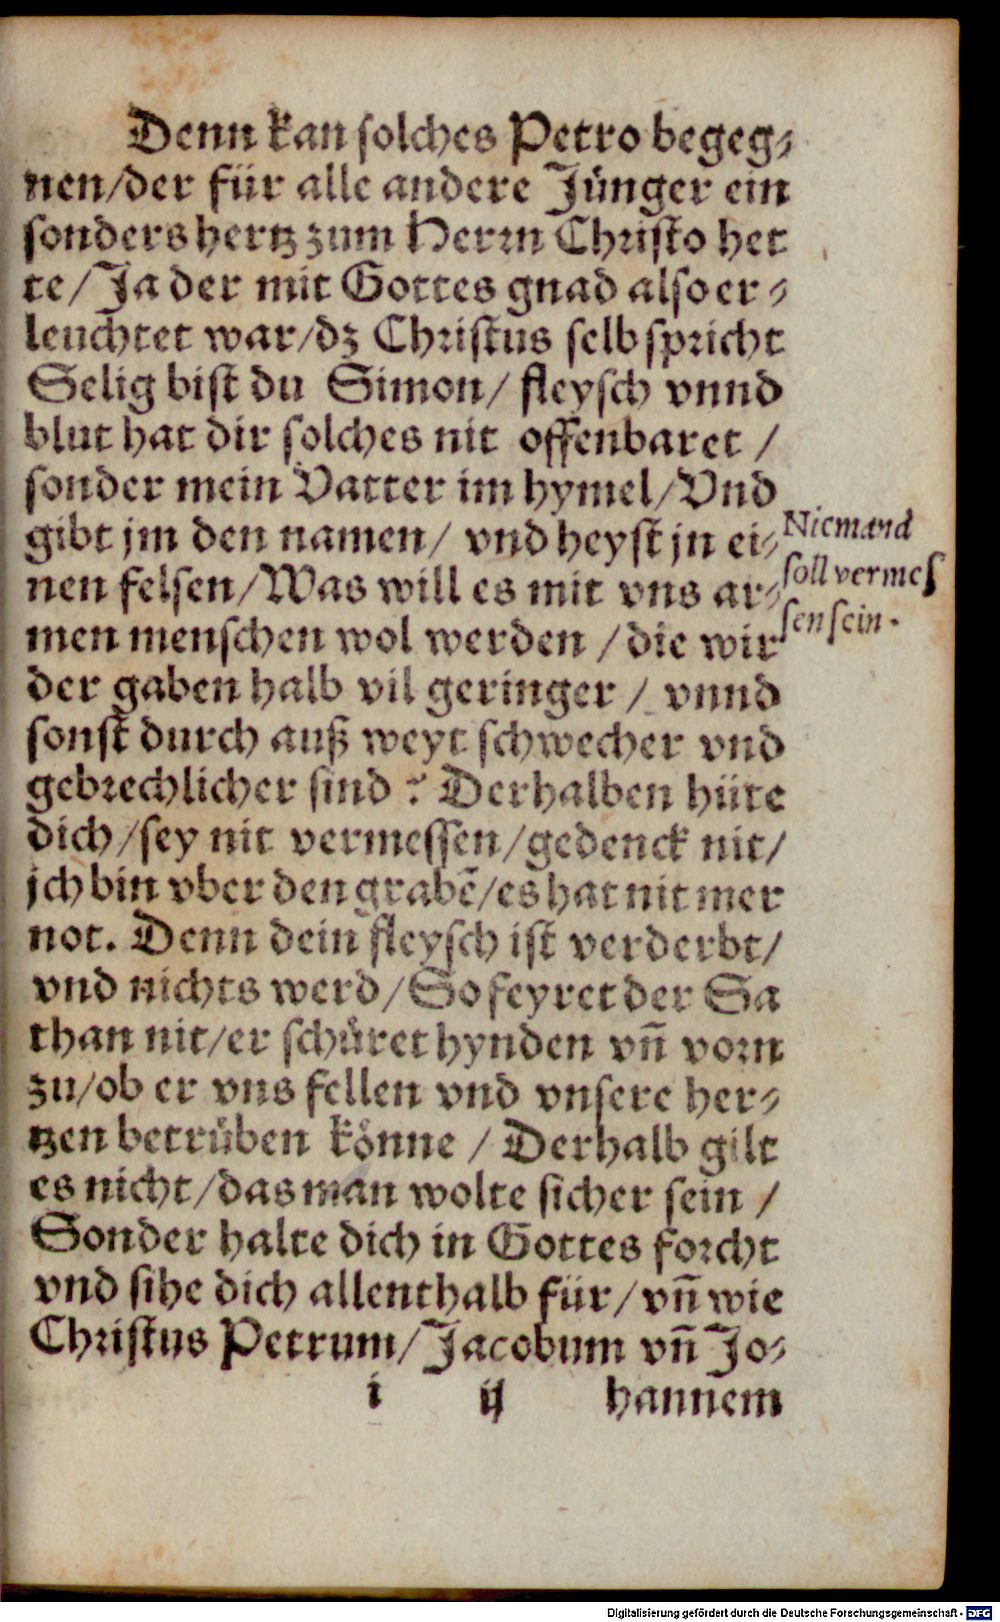 Denn kan solches Petro begeg⸗
nen/der für alle andere Jünger ein
sonders hertz zum Herrn Christo het
te/Ja der mit Gottes gnad also er⸗
leuchtet war/dz Christus selb spricht
Selig bist du Simon/ fleysch vnnd
blut hat dir solches nit offenbaret /
sonder mein Vatter im hymel/Vnd
gibt jm den namen/ vnd heyst jn ei⸗
nen felsen/Was will es mit vns ar⸗
men menschen wol werden /die wir
der gaben halb vil geringer / vnnd
sonst durch auß weyt schwecher vnd
gebrechlicher sind ? Derhalben hüte
dich/sey nit vermessen/gedenck nit/
jch bin vber den grabē/es hat nit mer
not. Denn dein fleysch ist verderbt/
vnd nichts werd/So feyret der Sa
than nit/er schüret hynden vn̄ vorn
zu/ob er vns fellen vnd vnsere her⸗
tzen betrüben könne / Derhalb gilt
es nicht/das man wolte sicher sein /
Sonder halte dich in Gottes forcht
vnd sihe dich allenthalb für/vn̄ wie
Christus Petrum/Jacobum vn̄ Jo⸗
i ij hannem
Niemand
soll vermes
sen sein.
Digitalisierung gefördert durch die Deutsche Forschungsgemeinschaft - DFG